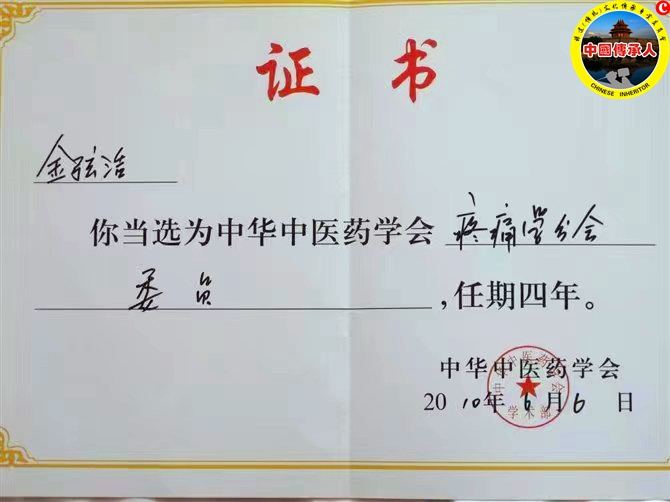 中國傳承人
CHINESE INHERITOR
证书
金弦浩
你当选为中华中医药学会 疼痛学分会
委员，任期四年。
中华中医药学会
学术部
2010年6月6日